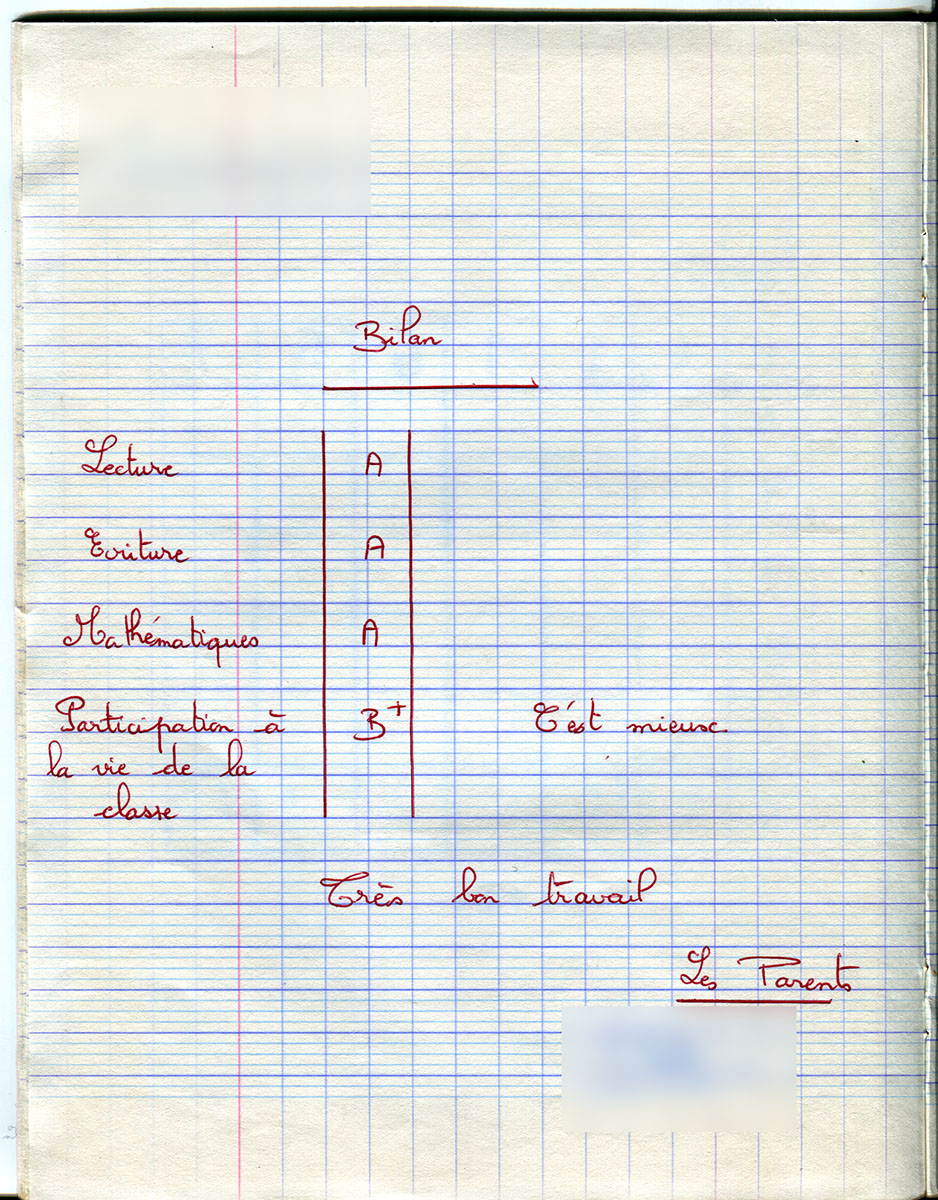 Bilan
Lecture A
Ecriture A
Mathématiques A
Participation à B+ C'est mieux.
la vie de la
classe
Très bon travail
Les Parents